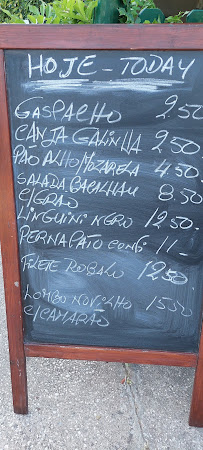 HOJE - TODAY
GASPACHO 2.50
CANJA GALINHA 2.50.
PÃO ALHO MOZARELA 4.50
SALADA BACALHAU 8.50
C/GRÃO
LINGUINI NERO 12.50.
PERNA PATO CONFI 11-
FILETE ROBALO 12.50
LOMBO NOVILHO 15.50
C/CAMARÃO